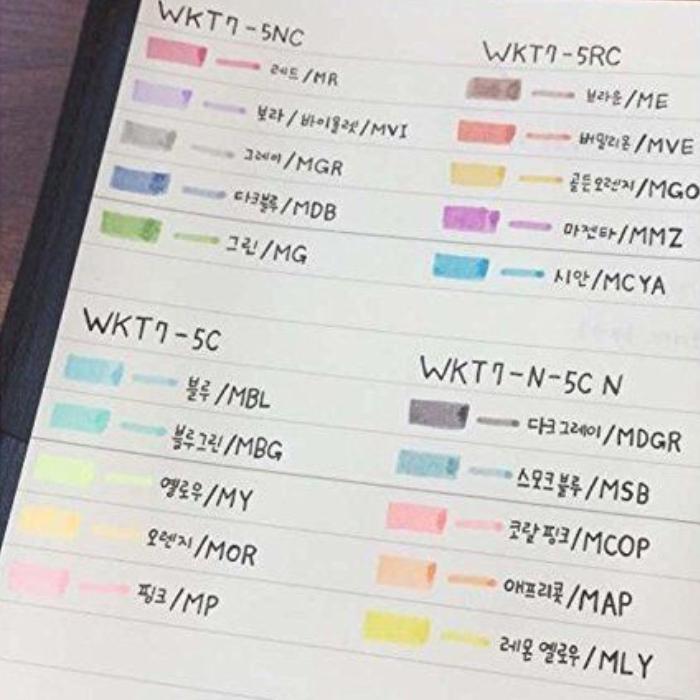 WKT7-5NC
레드/MR
보라/바이올렛/MVI
그레이/MGR
다크블루/MDB
그린/MG
WKT7-5RC
브라운/ME
버밀리온/MVE
골든오렌지/MGO
마젠타/MMZ
시안/MCYA
WKT7-5C
블루/MBL
블루그린/MBG
옐로우/MY
오렌지/MOR
핑크/MP
WKT7-N-5C N
다크그레이/MDGR
스모크블루/MSB
코랄핑크/MCOP
애프리콧/MAP
레몬 옐로우/MLY